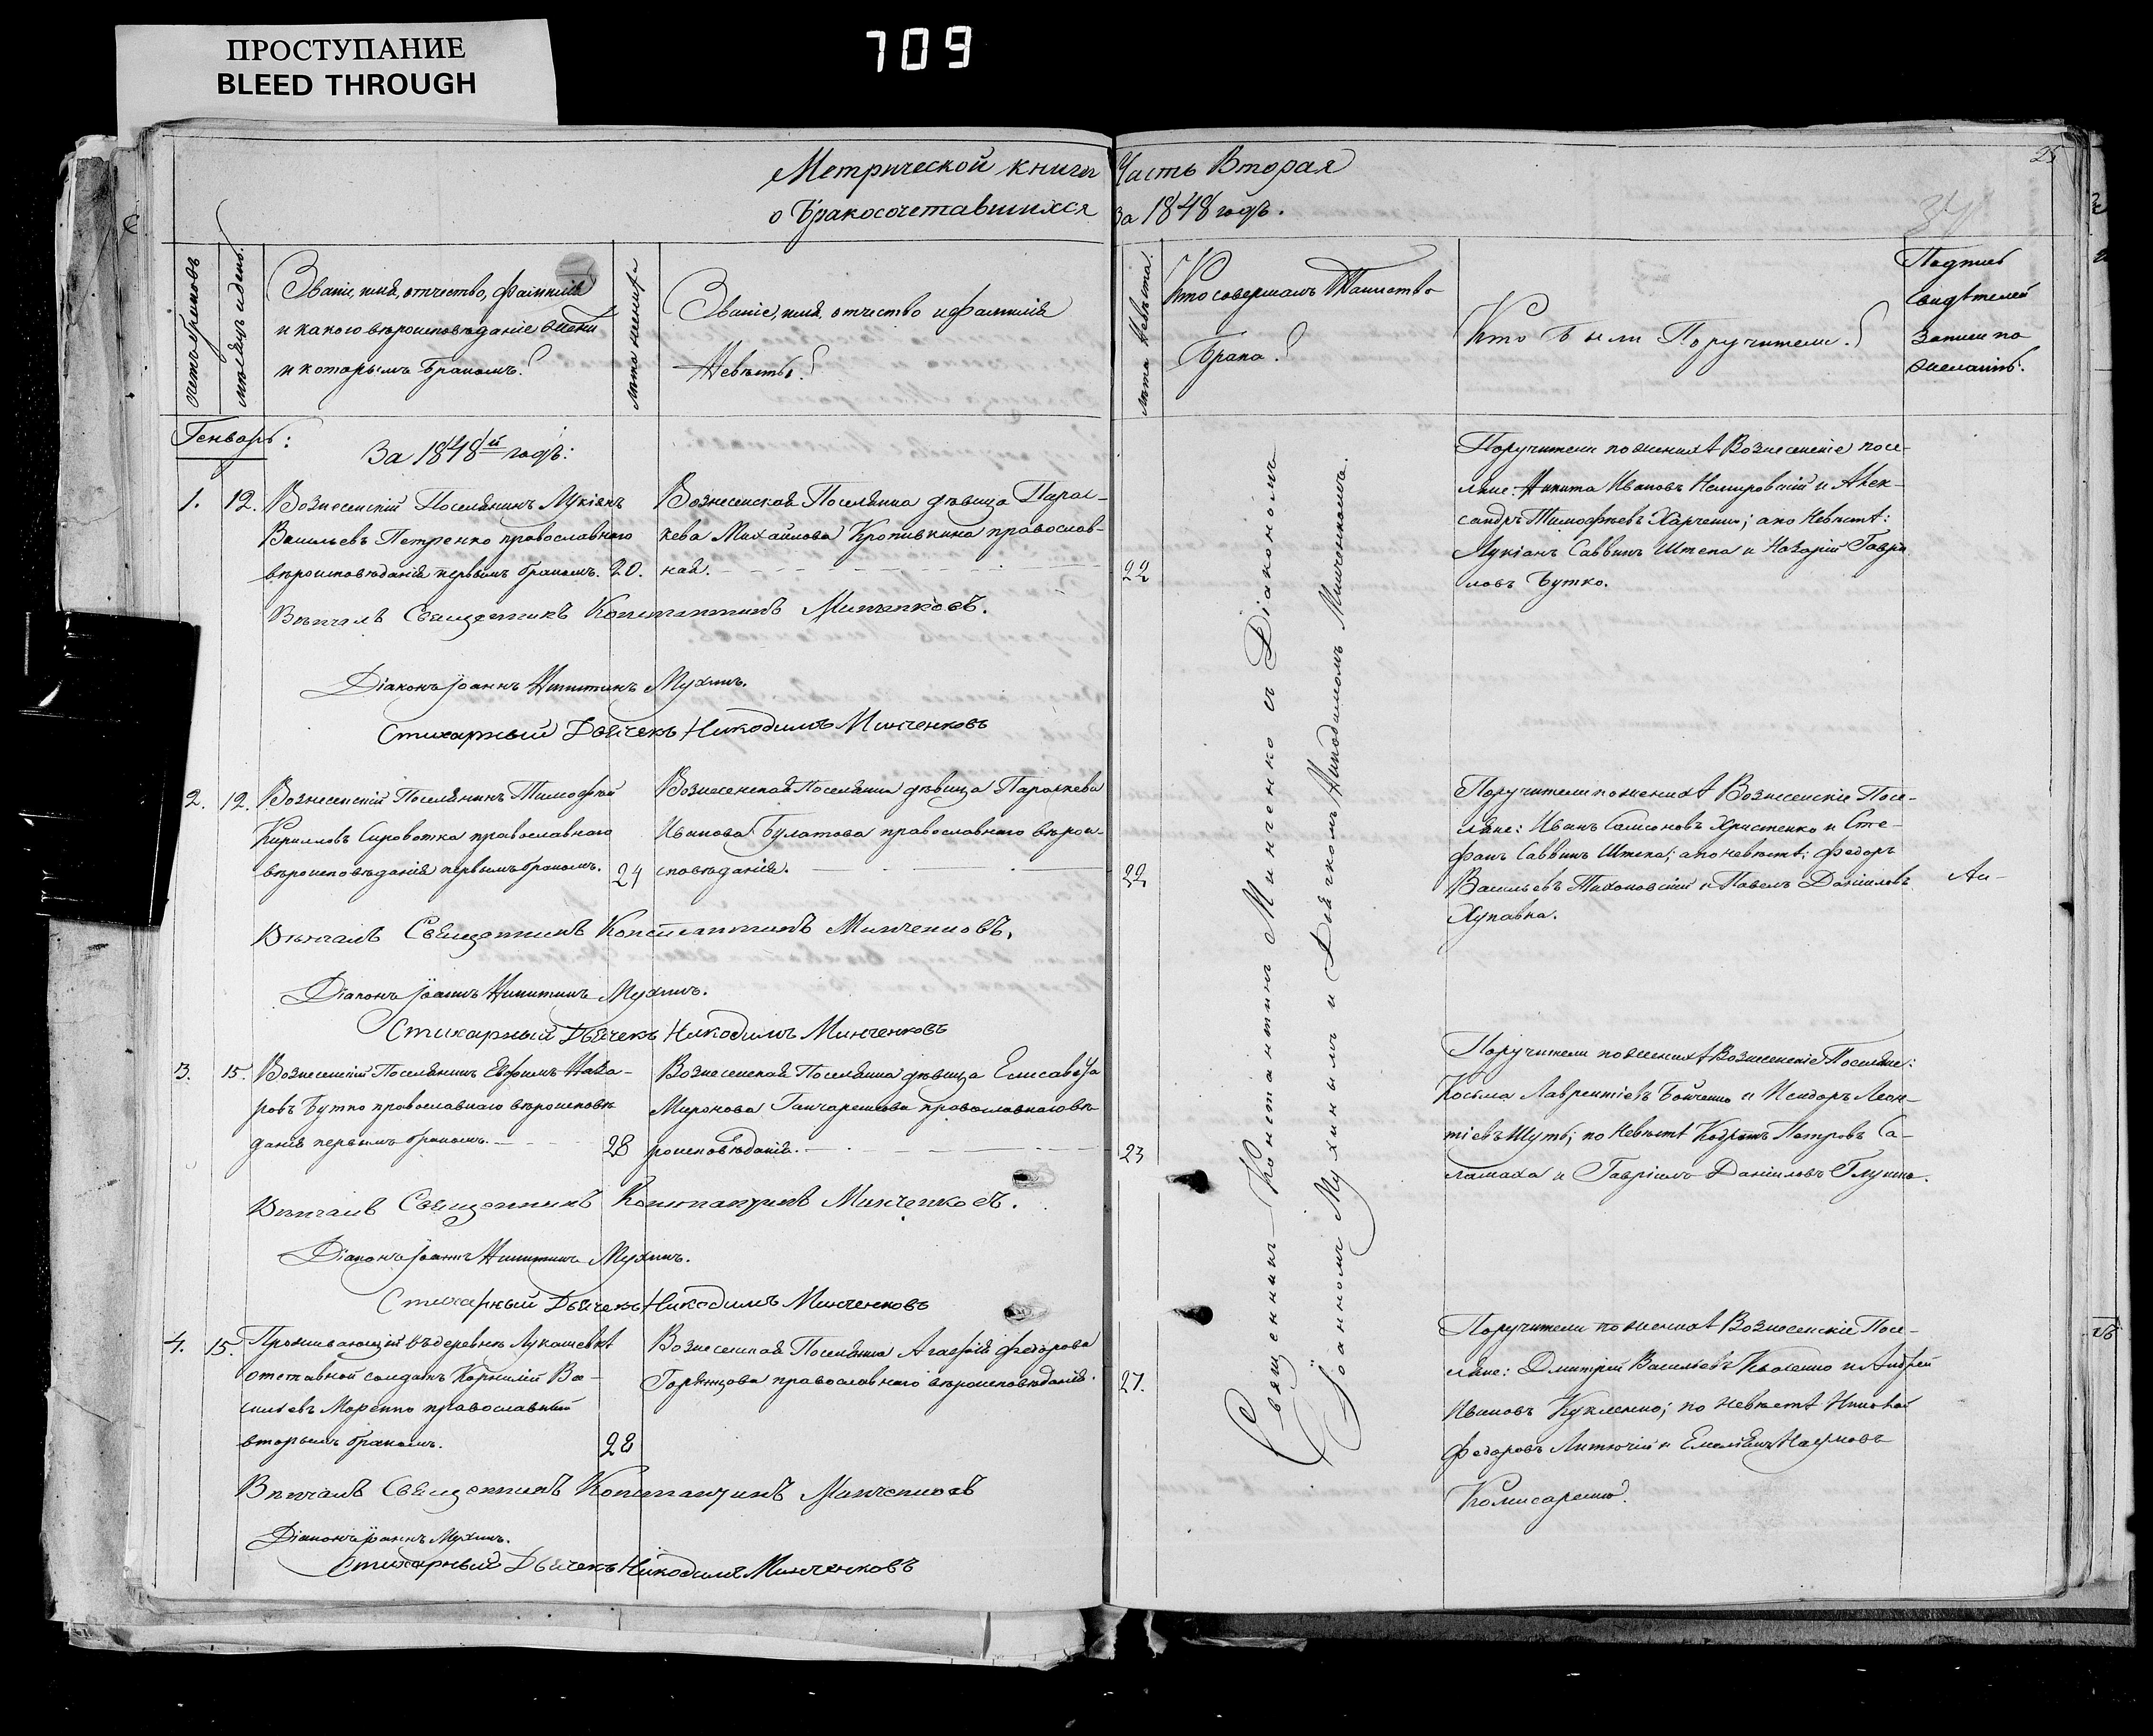 ПРОСТУПАНИЕ
BLEED THROUGH
709
Метрической книги Часть Вторая
о бракосочетавшихся за 1848 годъ.
25
37
счетъ браковъ
мѣсяцъ и день.
Званіе, имя, отчество, фамилія
и какого вѣроисповѣданіе жени
и которымъ бракомъ?
лѣта жениха
Званіе, имя, отчество и фамилія
Невѣсты?
лѣта Невѣсты.
Кто совершалъ Таинство
Брака?
Кто были Поручители?
Подпись
свидѣтелей
записи по
желанію.
Генварь:
За 1848й годъ:
1. 12. Вознесенскій Поселянинъ Лукіянъ
Васильевъ Петренко православнаго
вѣроисповѣданія первымъ бракомъ. 20.
Вознесенская Поселянка дѣвица Парас-
кева Михайлова Кропивкина православ-
ная.
22
Поручители по женихѣ Вознесенскіе посе-
ляне: Никита Ивановъ Немировскій и Алек-
сандръ Тимофѣевъ Харченко; а по Невѣстѣ:
Лукіанъ Саввинъ Штепа и Назарій Гаври
ловъ Бутко.
Вѣнчалъ Священникъ Константинъ Минченковъ.
Діаконъ Іоаннъ Никитинъ Мухинъ.
Стихарный Дьячекъ Никодимъ Минченковъ
2. 12. Вознесенскій Поселянинъ Тимофей
Кирилловъ Сыроватка православнаго
вѣроисповѣданія первымъ бракомъ. 24
Вознесенская Поселянка дѣвица Параскева
Иванова Булатова православнаго вѣрои-
сповѣданія.
22
Поручители по женихѣ Вознесенскіе Посе-
ляне: Иванъ Самсоновъ Христенко и Сте-
фанъ Саввинъ Штепа; а по невѣстѣ: Федоръ
Васильевъ Тихоновскій и Павелъ Даниловъ
Хупавка.
Вѣнчалъ Священникъ Константинъ Минченковъ.
Діаконъ Іоаннъ Никитинъ Мухинъ.
Стихарный Дьячекъ Никодимъ Минченковъ
3. 15. Вознесенскій Поселянинъ Евфимъ Наза-
ровъ Бутко православнаго вѣроисповѣ
данія первымъ бракомъ. 28
Вознесенская Поселянка дѣвица Елисавета
Миронова Ганчаренкова православнаго вѣ-
роисповѣданія.
23
Поручители по женихѣ Вознесенскіе Поселяне:
Косьма Лаврентіевъ Бойченко и Исидоръ Леон-
тіевъ Шуть; по Невѣстѣ Кодратъ Петровъ Са-
ламаха и Гавріилъ Даниловъ Глушко.
Вѣнчалъ Священникъ Константинъ Минченковъ.
Діаконъ Іоаннъ Никитинъ Мухинъ.
Стихарный Дьячекъ Никодимъ Минченковъ
4. 15. Проживающій въ деревнѣ Лукашевкѣ
отставной солдатъ Корнилій Ва-
сильевъ Моренко православный
вторымъ бракомъ. 28
Вознесенская Поселянка Агафія Федорова
Горянцова православнаго вѣроисповѣданія.
27.
Поручители по женихѣ Вознесенскіе Посе-
ляне: Дмитрій Васильевъ Квасенко и Андрей
Ивановъ Кукленко; по Невѣстѣ Николай
Федоровъ Литючій и Емельянъ Наумовъ
Комисаренко.
Вѣнчалъ Священникъ Константинъ Минченковъ
Діаконъ Іоаннъ Мухинъ.
Стихарный Дьячекъ Никодимъ Минченковъ
Священникъ Константинъ Минченко съ Діакономъ
Іоанномъ Мухинымъ и Дьячкомъ Никодимомъ Минченкомъ.